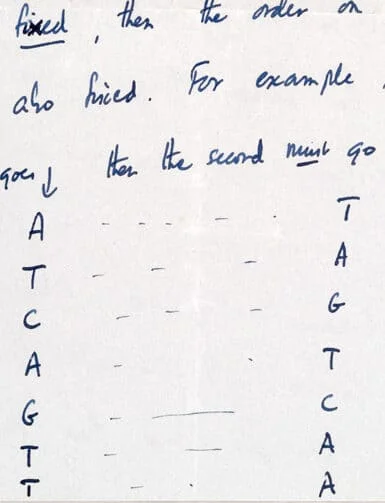 fixed, then the order on
also fixed. For example
goes ↓ then the second must go
A - - - - . T
T - - - A
C - - - G
A - . T
G - — C
T - — A
T - . A